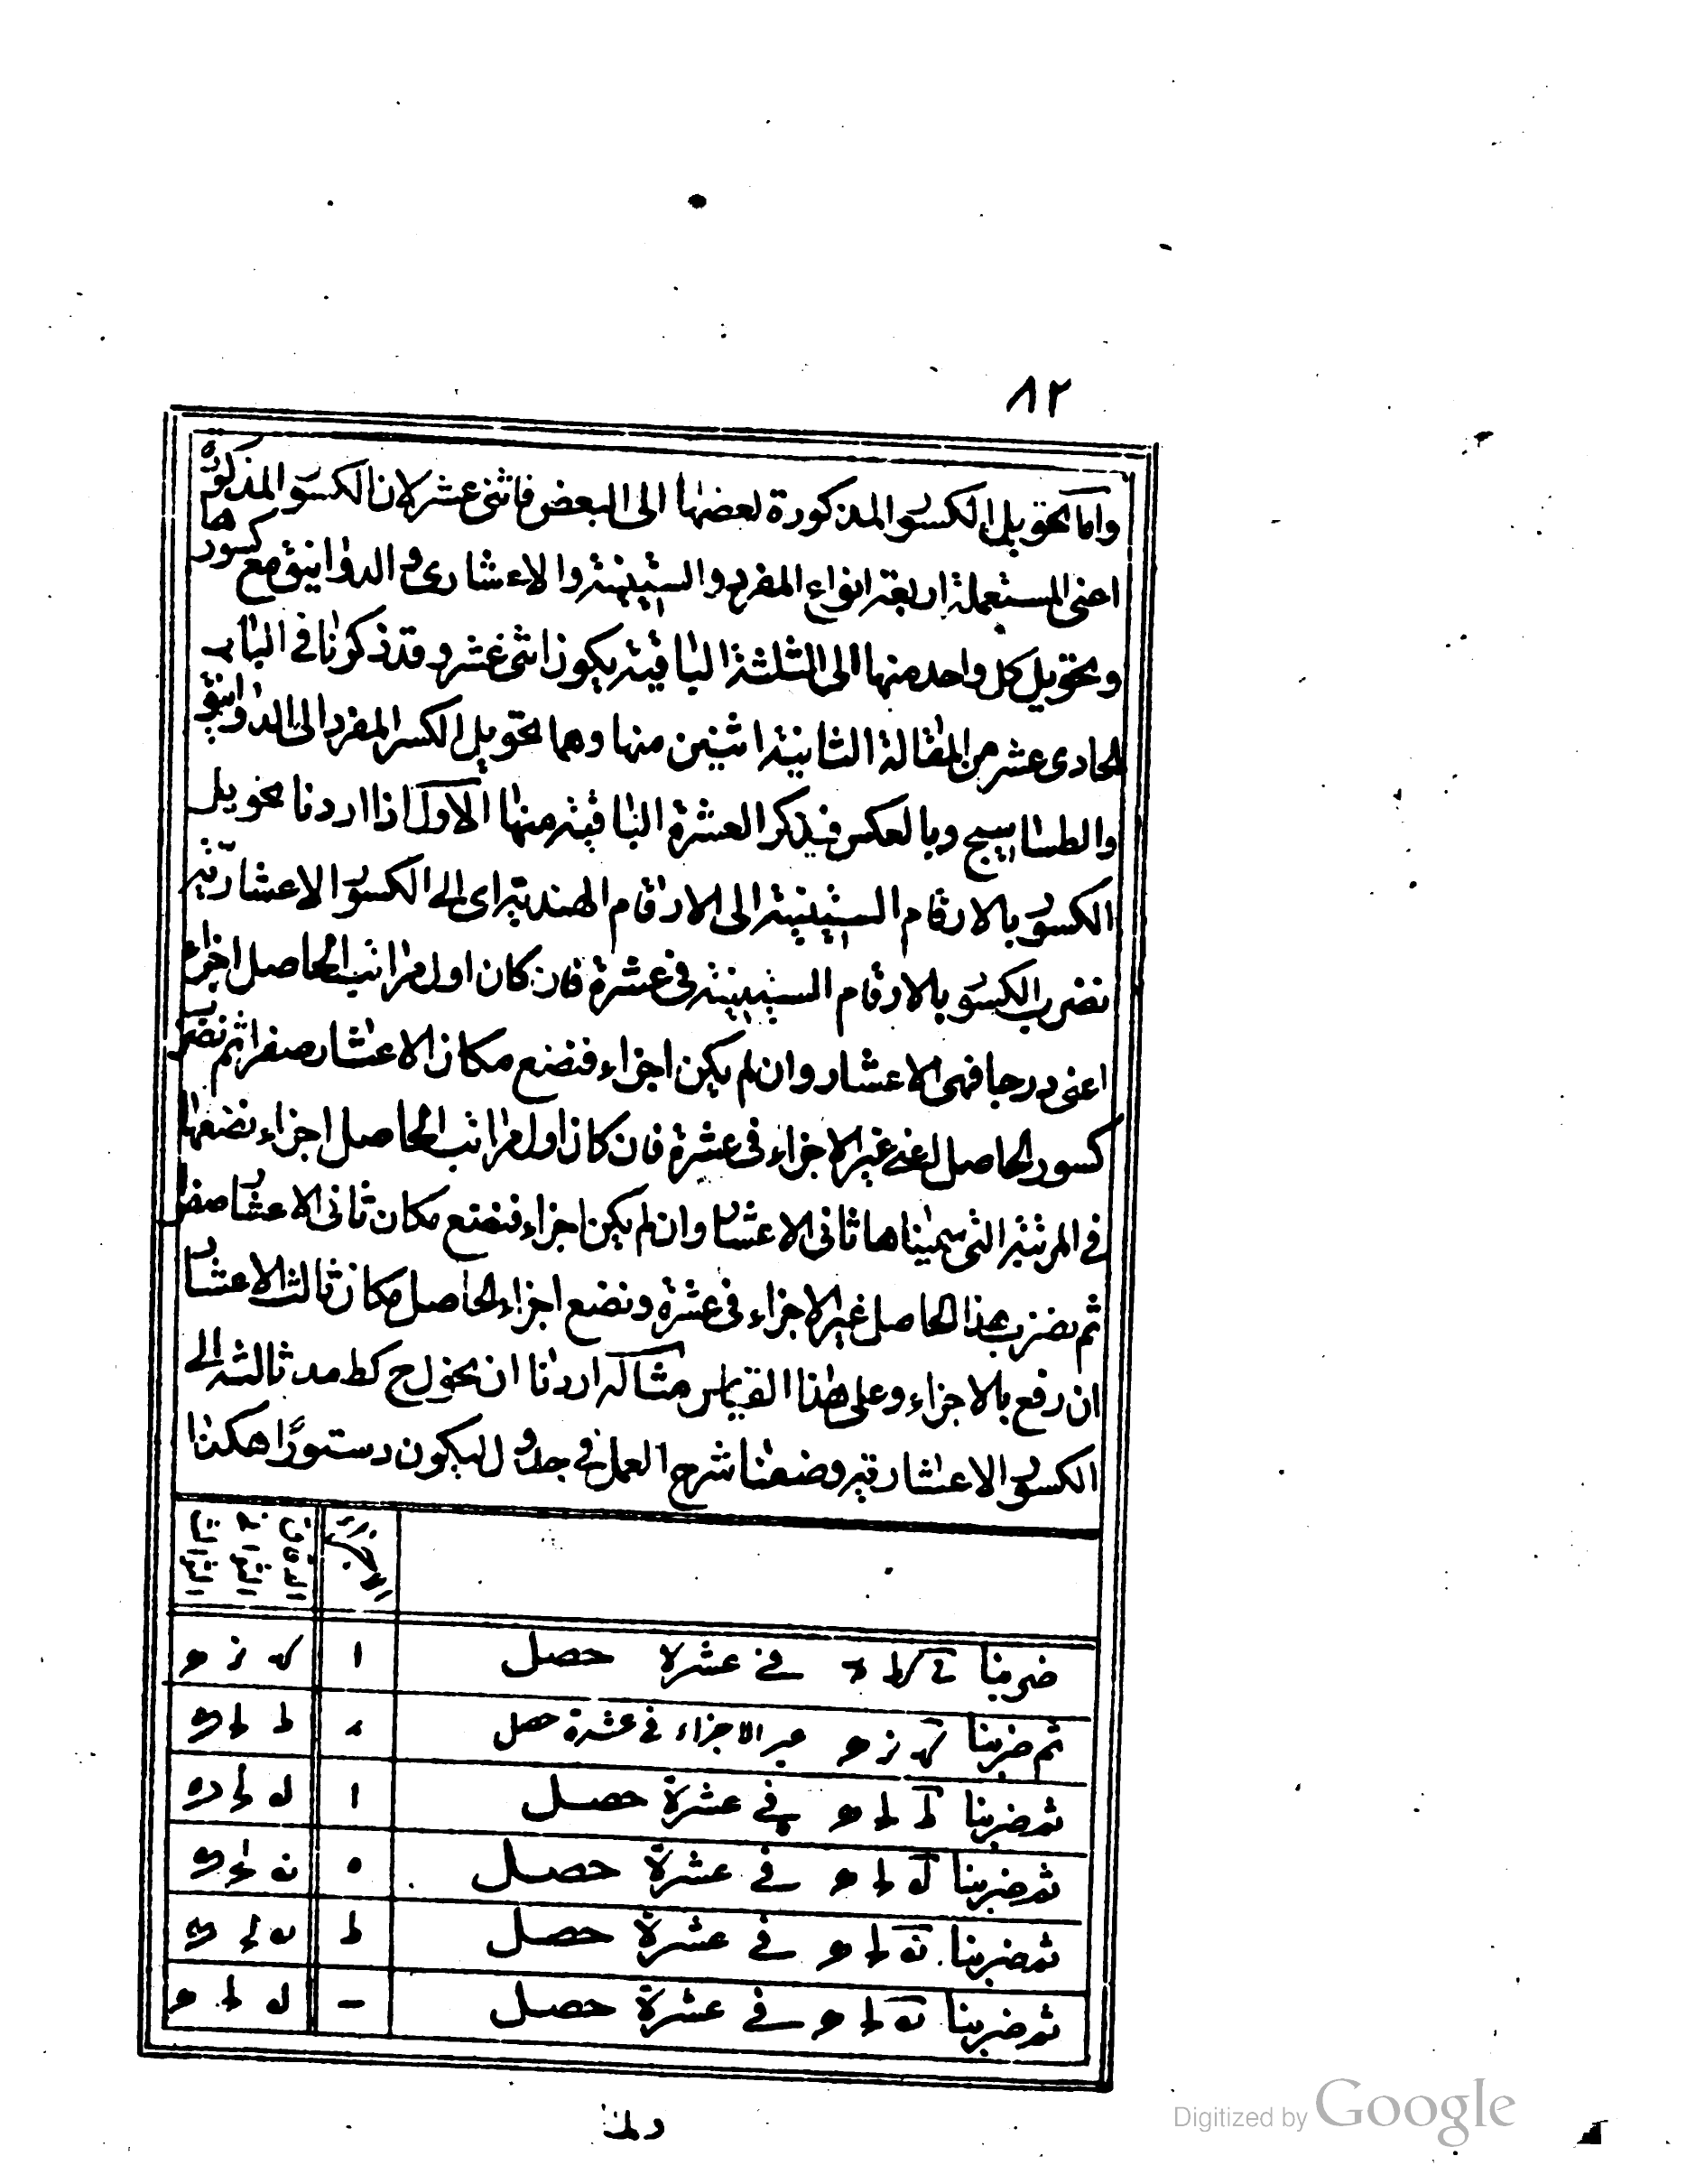 ٨٢
واما تحويل الكسور المذكورة بعضها الى البعض فاثنى عشر لان الكسور المذكورة
اعنى المستعملة اربعة انواع المفردة والستينية والاعشارى والدوانيق مع كسورها
وتحويل كل واحد منها الى الثلثة الباقية يكون اثنى عشر وقد ذكرنا فى الباب
الحادى عشر من المقالة الثانية اثنين منها وهما تحويل الكسر المفرد الى الدوانيق
والطساسيج وبالعكس فنذكر العشرة الباقية منها الاول اذا اردنا تحويل
الكسور بالارقام الستينية الى الارقام الهندية اى الى الكسور الاعشارية
نضرب الكسور بالارقام الستينية فى عشرة فان كان اول مراتب الحاصل اجزاء
اعنى درجا فهى الاعشار وان لم يكن اجزاء فنضع مكان الاعشار صفرا ثم نضرب
كسور الحاصل اعنى غير الاجزاء فى عشرة فان كان اول مراتب الحاصل اجزاء نضعها
فى المرتبة التى سميناها ثانى الاعشار وان لم يكن اجزاء فنضع مكان ثانى الاعشار صفرا
ثم نضرب هذا الحاصل غير الاجزاء فى عشرة ونضع اجزاء الحاصل مكان ثالث الاعشار
ان رفع بالاجزاء وعلى هذا القياس مثاله اردنا ان نحول ح كط مد ثالثة الى
الكسور الاعشارية وضعنا شرح العمل فى جدول ليكون دستورا هكذا
ضربنا فى عشرة حصل ا
ثم ضربنا غير الاجزاء فى عشرة حصل
ثم ضربنا فى عشرة حصل ا
ثم ضربنا فى عشرة حصل ه
ثم ضربنا فى عشرة حصل ط
ثم ضربنا فى عشرة حصل
Digitized by Google